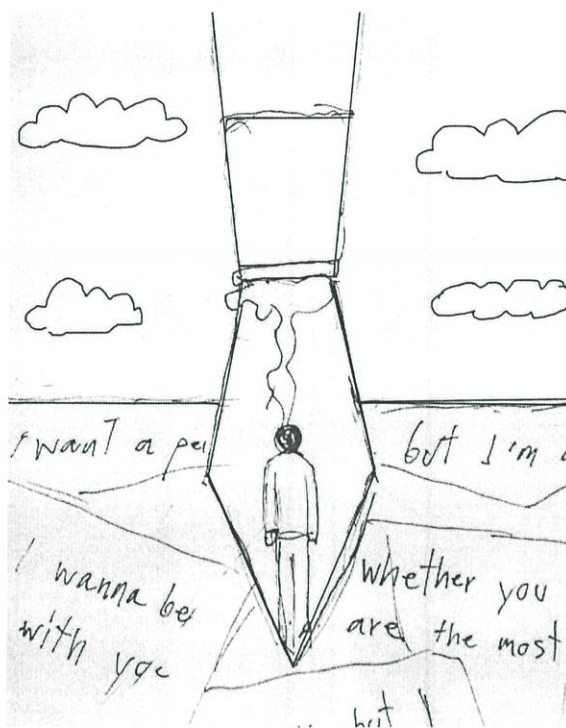 I want a
but I'm
I wanna be
with you
Whether you
are the most
but